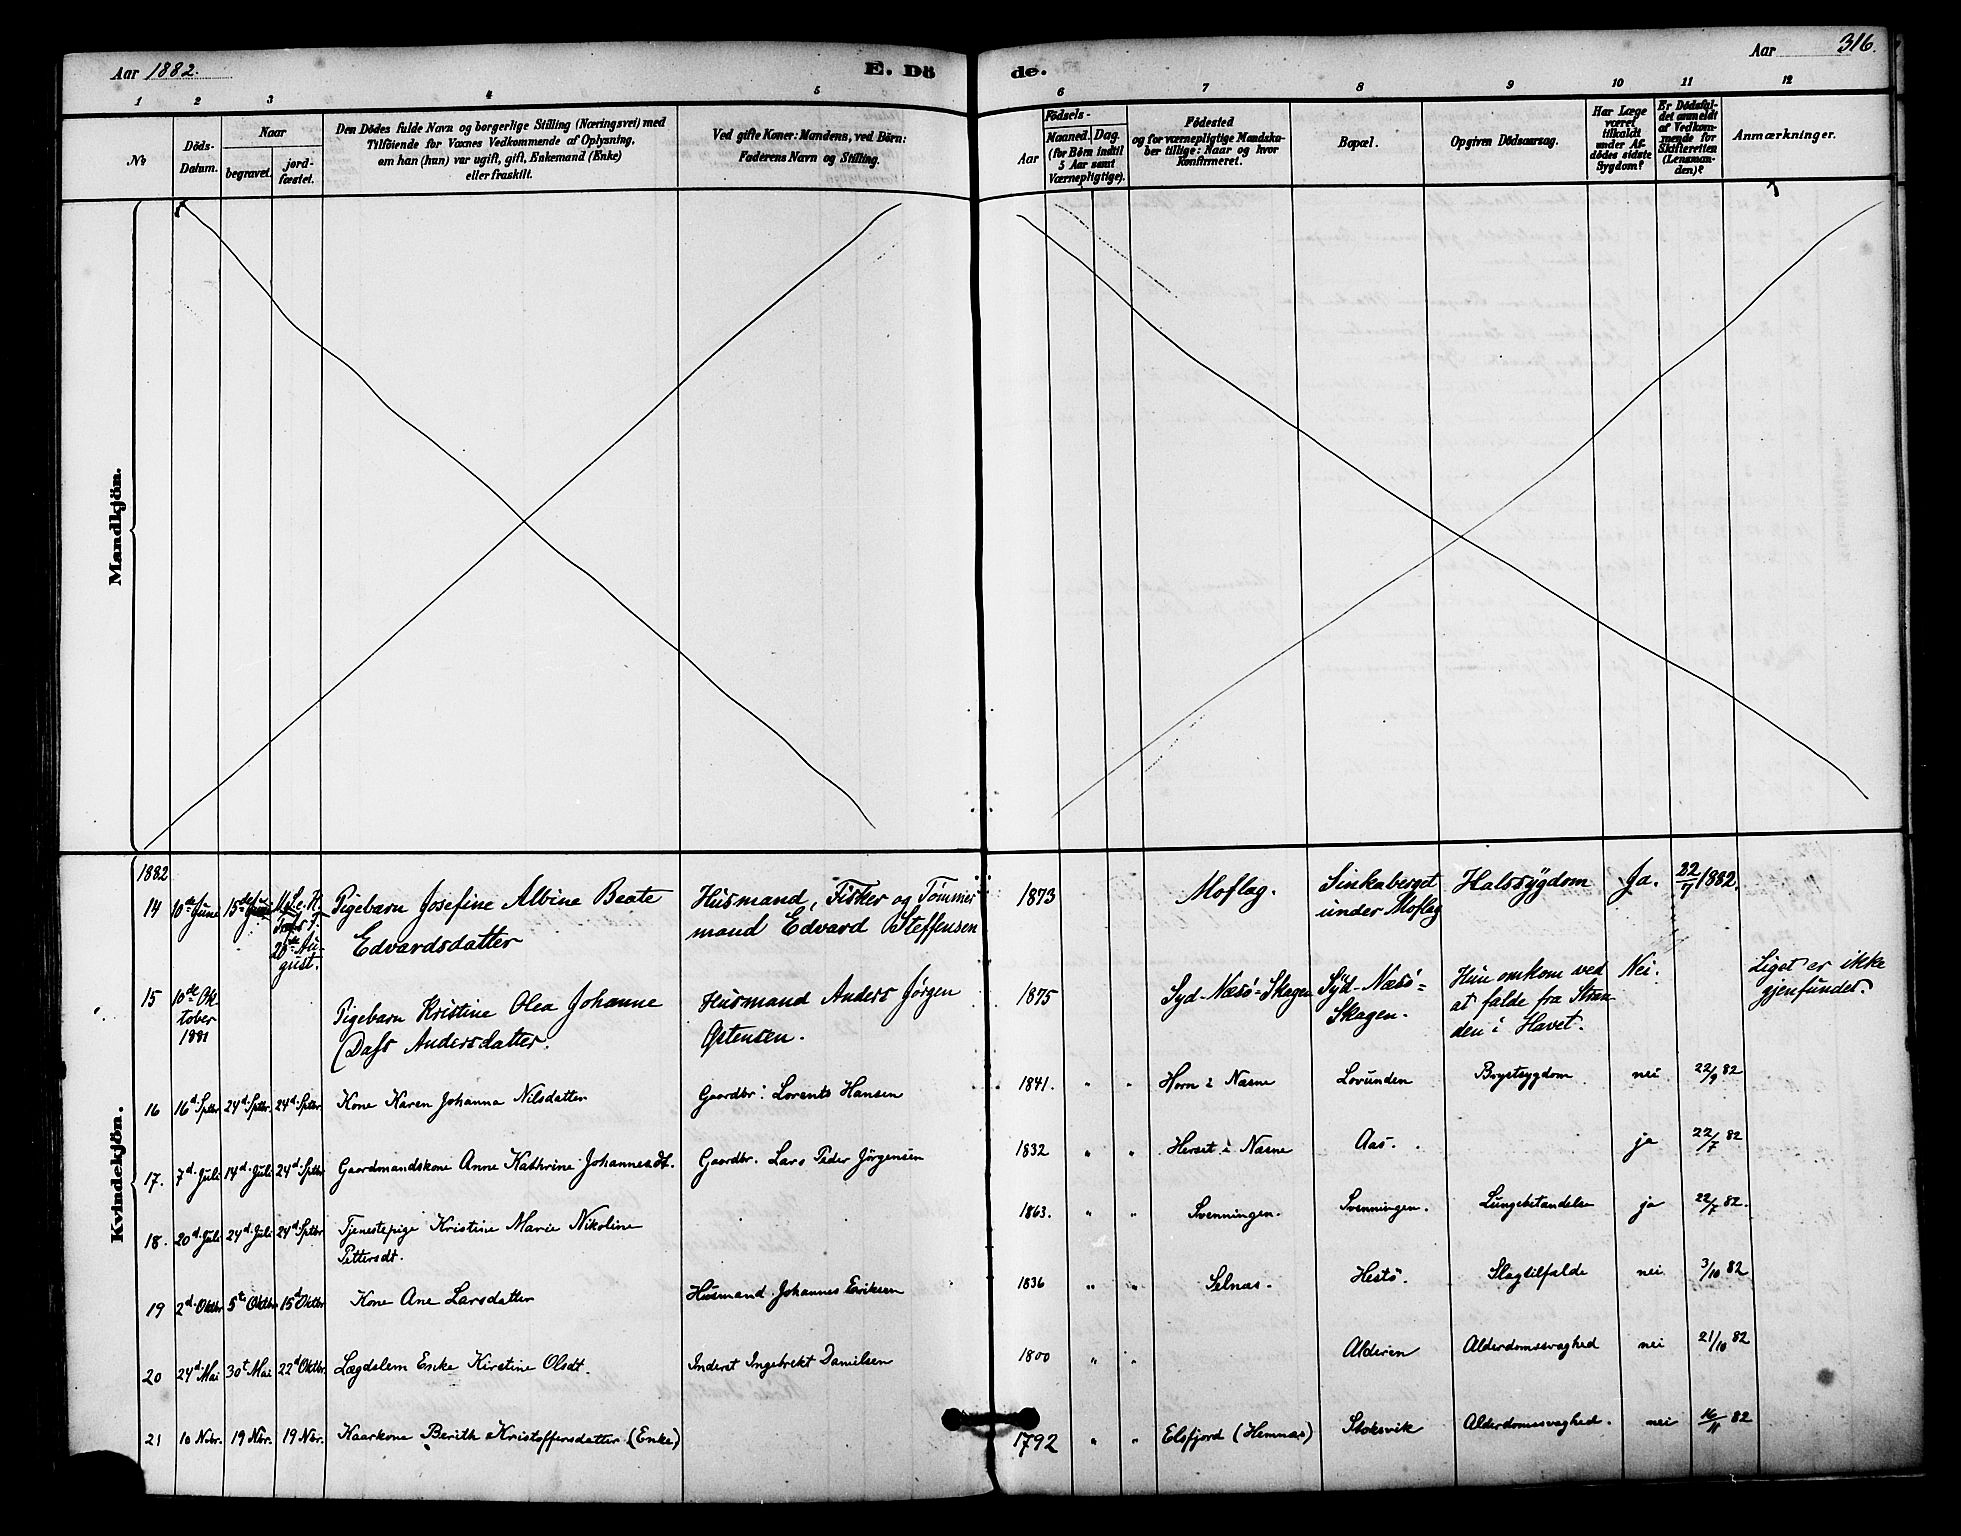 Aar 1882.
E. Dö
de.
Aar 316.
1 2 3 4 5 6 7 8 9 10 11 12
No
Döds-
Datum.
Naar
begravet.
jord-
fæstet.
Den Dödes fulde Navn og borgerlige Stilling (Næringsvei) med
Tilföiende for Voxnes Vedkommende af Oplysning,
om han (hun) var ugift, gift, Enkemand (Enke)
eller fraskilt.
Ved gifte Koner: Mandens, ved Börn:
Faderens Navn og Stilling.
Födsels-
Aar
Maaned. Dag.
(for Børn indtil
5 Aar samt
Værnepligtige).
Födested
og for værnepligtige Mandska-
ber tillige: Naar og hvor
Konfirmeret.
Bopæl.
Opgiven Dödsaarsag.
Har Læge
været
tilkaldt
under Af-
dödes sidste
Sygdom?
Er Dödsfal-
det anmeldt
af Vedkom-
mende for
Skifteretten
(Lensman-
den)?
Anmærkninger.
Mandkjön.
Kvindekjön.
1882
14 10de June 15de June 20de Au-
gust. Pigebarn Josefine Albine Beate
Edvardsdatter Husmand, Fisker og Tømmer
mand Edvard Steffensen 1873 Moflag. Sinkaberget
under Moflag Halssÿgdom Ja. 22/7 1882.
15 10de Ok
tober
1881 Pigebarn Kristine Olea Johanne
Andersdatter. Husmand Anders Jörgen
Ostensen. 1875 Syd-Næsö-Skagen Sÿd-Næsö-
Skagen. Hun omkom ved
at falde fra Stran
den i Havet. Nei. Liget er ikke
gjenfundet.
16 16d Sptbr. 24d Sptbr. 24d Sptbr. Kone Karen Johanna Nilsdatter Gaardbr: Lorents Hansen 1841. " " Horn i Næsne Lovunden Brystsygdom nei 22/9 82
17. 7d Juli 14d Juli 24d Sptbr Gaardmandskone Anne Kathrine Johannesdt. Gaardbr. Lars Peder Jørgensen 1832 " " Herset i Næsne Aas. ja 22/7 82
18. 20d Juli 24d Juli 24d Sptbr Tjenestepige Kristine Marie Nikoline
Pettersdt. 1863. " " Svenningen. Svenningen. Lungebetændelse ja 22/7 82.
19 2d Oktbr. 5te Oktbr. 15d Oktbr Kone Ane Larsdatter Husmand Johannes Eriksen 1836 " " Selnæs. Hestö. Slagtilfælde nei 3/10 82
20 24d Mai 30t Mai 22d Oktbr. Lægdslem Enke Kirstine Olsdt. Inderst Ingebrekt Danielsen 1800 " " Alderen Alderdomssvaghed nei 21/10 82
21 10 Nvbr. 19 Nbr. 19 Nbr. Kaarkone Berith Kristoffersdatter (Enke) 1792 " " Elsfjord (Hemnæs) Stoksvik Alderdomssvaghed. nei 16/11 82